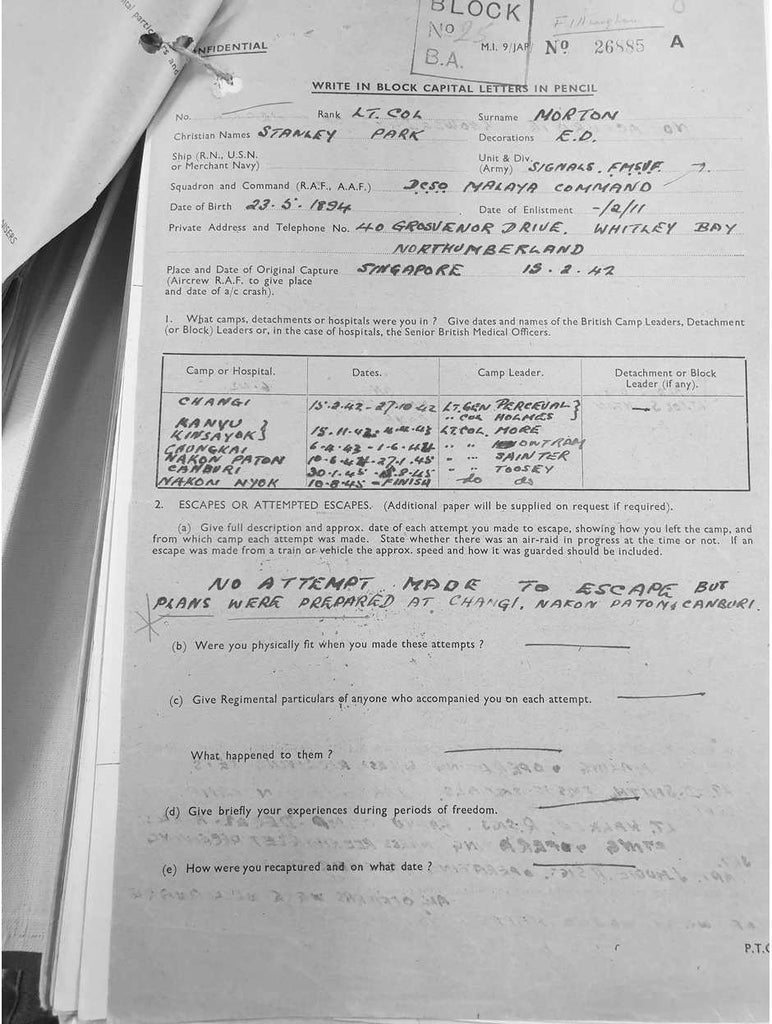 BLOCK
No
B.A.
NFIDENTIAL
M.I. 9/JAP No 26885 A
WRITE IN BLOCK CAPITAL LETTERS IN PENCIL
No. Rank LT. COL Surname MORTON
Christian Names STANLEY PARK Decorations E.D.
Ship (R.N., U.S.N. or Merchant Navy) Unit & Div. (Army) SIGNALS. FMSVF
Squadron and Command (R.A.F., A.A.F.) DCSO MALAYA COMMAND
Date of Birth 23.5.1894 Date of Enlistment -/2/11
Private Address and Telephone No. 40 GROSVENOR DRIVE. WHITLEY BAY
NORTHUMBERLAND
Place and Date of Original Capture SINGAPORE 15.2.42
(Aircrew R.A.F. to give place
and date of a/c crash).
1. What camps, detachments or hospitals were you in ? Give dates and names of the British Camp Leaders, Detachment
(or Block) Leaders or, in the case of hospitals, the Senior British Medical Officers.
Camp or Hospital. Dates. Camp Leader. Detachment or Block
Leader (if any).
CHANGI 15.2.42-27.10.42 LT.GEN PERCEVAL }
" COL HOLMES }
KANYU }
KINSAYOK } 15.11.42- LT.COL. MORE
CHONGKAI 6.4.43-1.6.44 " " OUTRAM
NAKON PATON 10.6.44-27.1.45 " " SAINTER
CANBURI 30.1.45- " " TOOSEY
NAKON NYOK 10-8-45-FINISH do do
2. ESCAPES OR ATTEMPTED ESCAPES. (Additional paper will be supplied on request if required).
(a) Give full description and approx. date of each attempt you made to escape, showing how you left the camp, and
from which camp each attempt was made. State whether there was an air-raid in progress at the time or not. If an
escape was made from a train or vehicle the approx. speed and how it was guarded should be included.
NO ATTEMPT MADE TO ESCAPE BUT
PLANS WERE PREPARED AT CHANGI, NAKON PATON & CANBURI.
(b) Were you physically fit when you made these attempts ?
(c) Give Regimental particulars of anyone who accompanied you on each attempt.
What happened to them ?
(d) Give briefly your experiences during periods of freedom.
(e) How were you recaptured and on what date ?
P.T.O